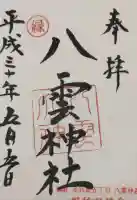 奉拝
縁
八雲神社
平成三十年五月五日